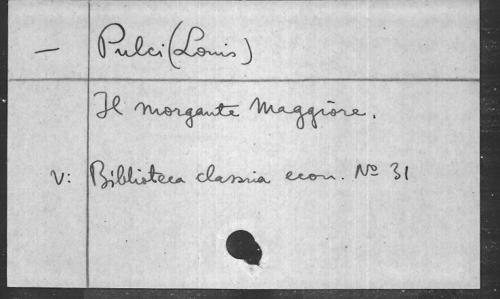 — Pulci (Louis)
Il morgante Maggiore.
V: Biblioteca classica econ. Nº 31